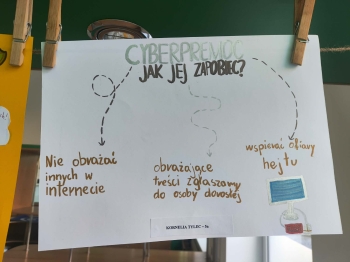 CYBERPRZEMOC
JAK JEJ ZAPOBIEC?
Nie obrażać
innych w
internecie
obrażające
treści zgłaszamy
do osoby dorosłej
wspierać ofiary
hejtu
KORNELIA TYLEC - 5a